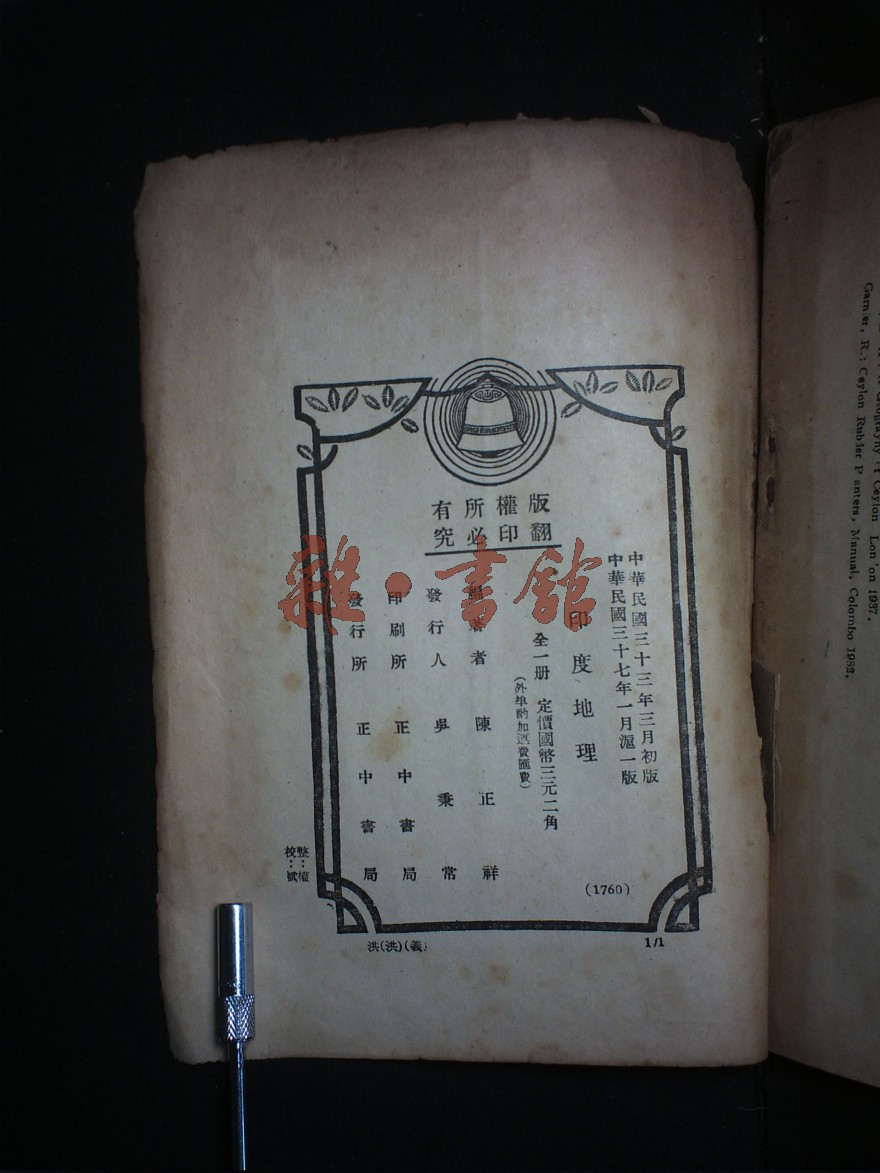 版權所有
翻印必究
中華民國三十三年三月初版
中華民國三十七年一月滬一版
印度地理
全一册 定價國幣三元二角
(外埠酌加運費匯費)
著者 陳正祥
發行人 吳秉常
印刷所 正中書局
發行所 正中書局
(1760)
整:權
校:斌
洪(洪)(義)
1/1
雜·書館
Geography of Ceylon London 1937.
Garnier, R.: Ceylon Rubber Planters, Manual, Colombo 1932.